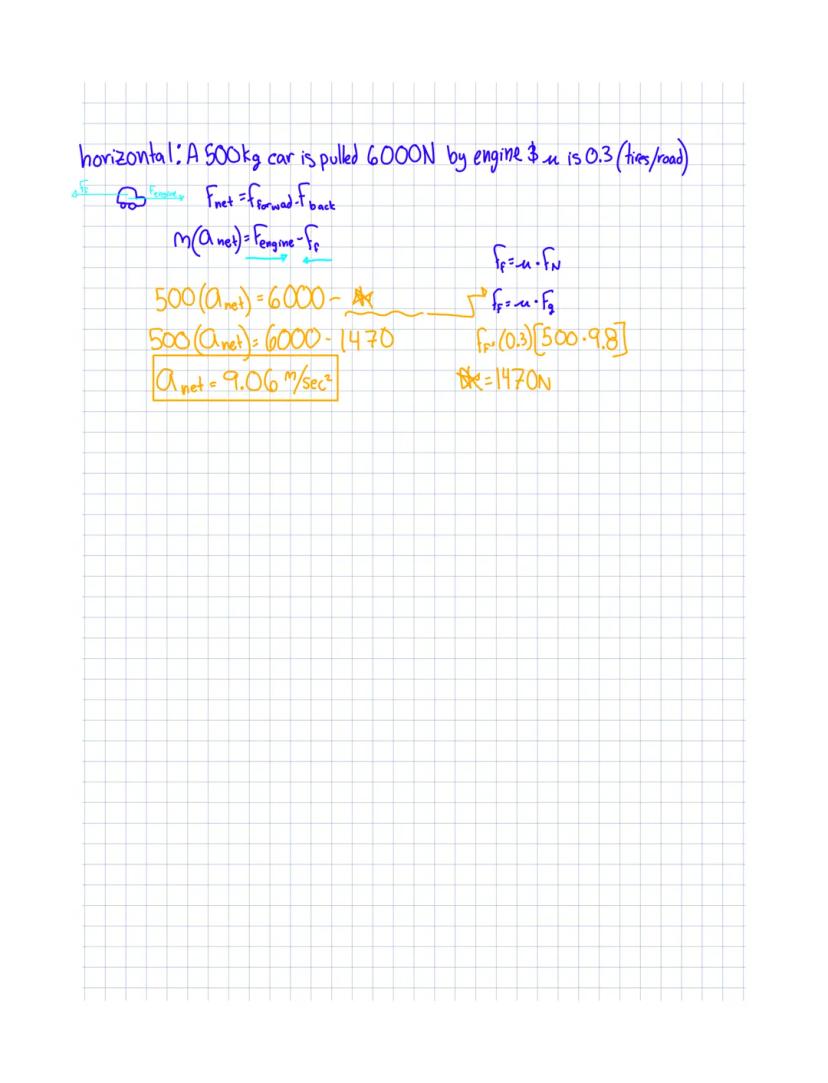 horizontal: A 500kg car is pulled 6000N by engine & μ is 0.3 (tires/road)
Ff Fengine Fnet = fforwad - Fback
m(anet) = Fengine - Ff
fF = μ · FN
500(anet) = 6000 - ☆
fF = μ · Fg
500(anet) = 6000 - 1470
fF = (0.3)[500 · 9.8]
anet = 9.06 m/sec²
☆ = 1470N